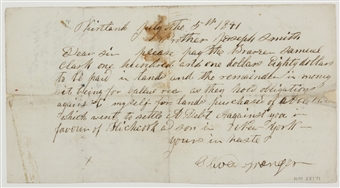 Kirtland July the 5th 1841
Brother Joseph Smith
Dear Sir please pay the Bearer Samuel
Clark one hundred and one dollars Eighty dollars
to be paid in land and the remainder in money
it being for value rec as they hold obligations
against myself for lands purchased of
which went to settle a Debt against you in
favour of & son in New York
yours in haste
Oliver Granger